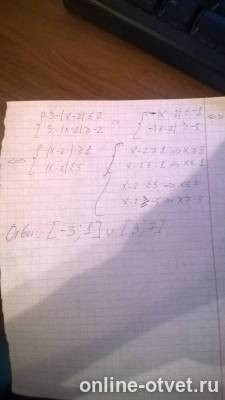 { 3-|x-2| ≤ 2
{ 3-|x-2| ≥ -2
{ -|x-2| ≤ -1
{ -|x-2| ≥ -5 ⇔
⇔ { |x-2| ≥ 1
{ |x-2| ≤ 5
x-2 ≥ 1 ⇒ x ≥ 3
x-2 ≤ -1 ⇒ x ≤ 1
x-2 ≤ 5 ⇒ x ≤ 7
x-2 ≥ -5 ⇒ x ≥ -3
Ответ: [-3; 1] ∪ [3; 7]
online-otvet.ru